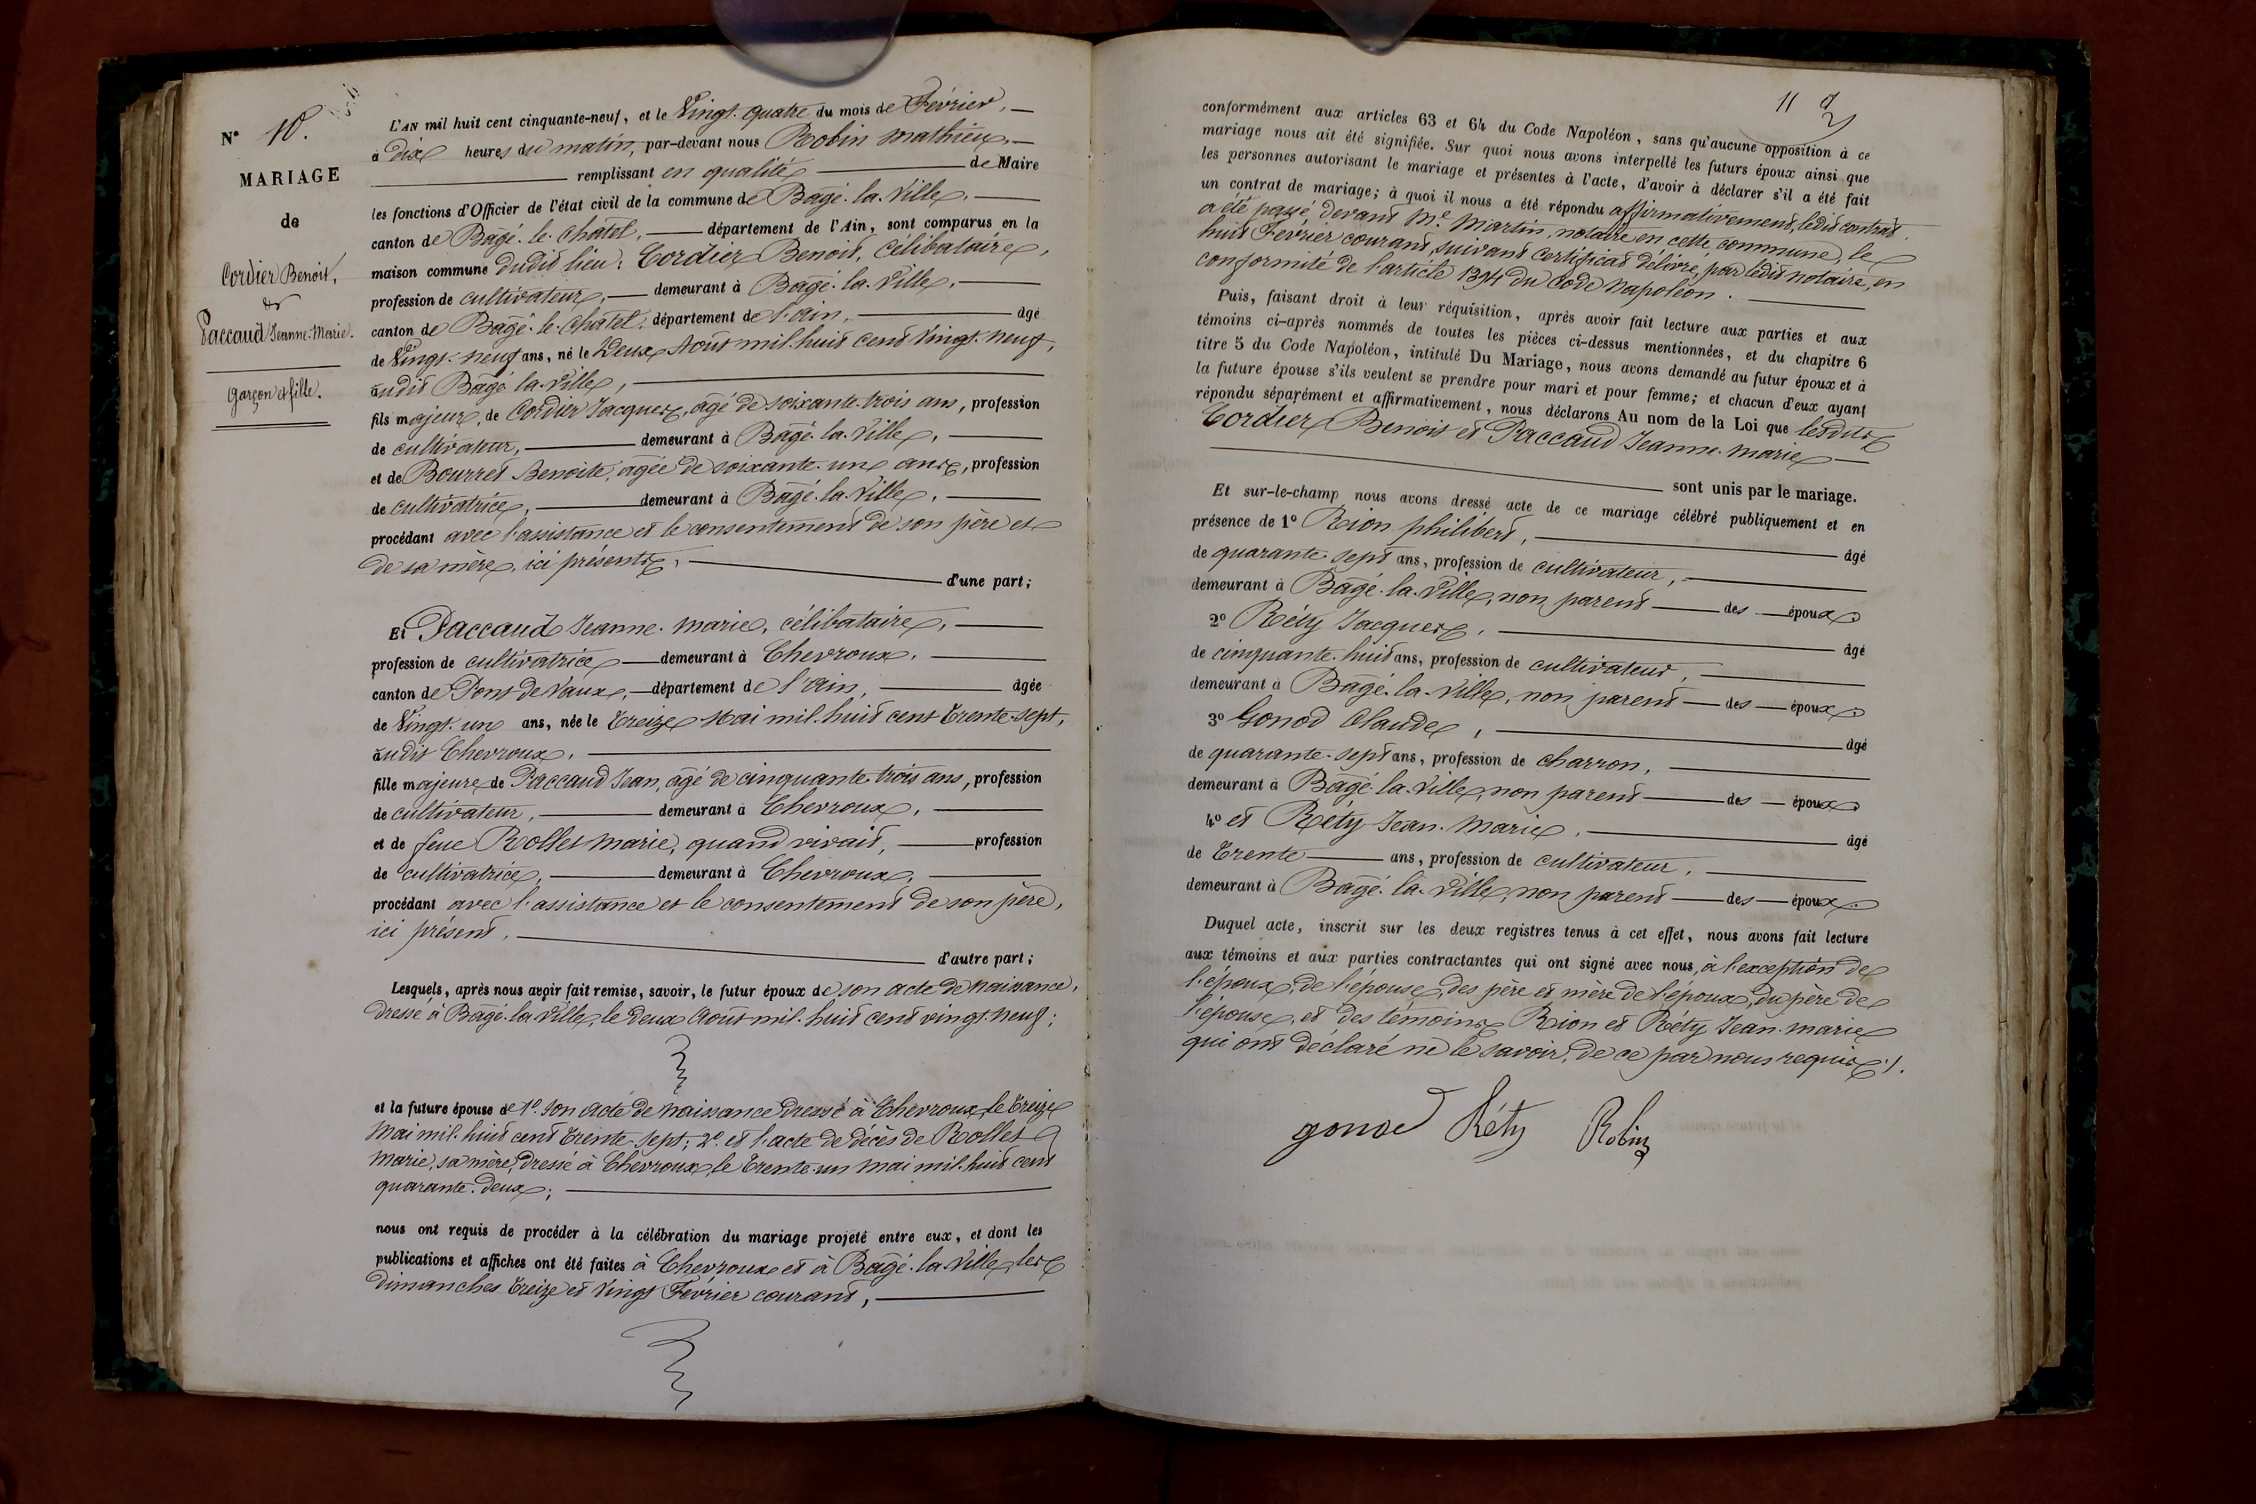 N° 10.
MARIAGE
de
Cordier Benoit,
&
Paccaud Jeanne-Marie.
garçon et fille.
L'AN mil huit cent cinquante-neuf, et le Vingt-quatre du mois de Février,
à dix heures du matin, par-devant nous Robin Mathieu,
remplissant en qualité de Maire
les fonctions d'Officier de l'état civil de la commune de Bâgé-la-Ville,
canton de Bâgé-le-Châtel, département de l'Ain, sont comparus en la
maison commune dudit lieu: Cordier Benoit, Célibataire,
profession de cultivateur, demeurant à Bâgé-la-Ville,
canton de Bâgé-le-Châtel, département de l'Ain, âgé
de Vingt-neuf ans, né le Deux Août mil-huit cent Vingt-neuf,
audit Bâgé-la-Ville,
fils majeur, de Cordier Jacques, âgé de soixante-trois ans, profession
de cultivateur, demeurant à Bâgé-la-Ville,
et de Bourret Benoite, âgée de soixante-un ans, profession
de cultivatrice, demeurant à Bâgé-la-Ville,
procédant avec l'assistance et le consentement de son père et
de sa mère, ici présents, d'une part;
Et Paccaud Jeanne-Marie, célibataire,
profession de cultivatrice demeurant à Chevroux,
canton de Pont de Vaux, département de l'Ain, âgée
de Vingt-un ans, née le Treize Mai mil-huit cent Trente-sept,
audit Chevroux,
fille majeure de Paccaud Jean, âgé de cinquante-trois ans, profession
de cultivateur, demeurant à Chevroux,
et de feue Rollet Marie, quand vivait, profession
de cultivatrice, demeurant à Chevroux,
procédant avec l'assistance et le consentement de son père,
ici présent, d'autre part;
Lesquels, après nous avoir fait remise, savoir, le futur époux de son acte de naissance,
dressé à Bâgé-la-Ville, le deux Août mil-huit cent vingt-neuf;
et la future épouse de 1°. son acte de naissance dressé à Chevroux, le Treize
Mai mil-huit cent Trente-sept; 2°. et l'acte de décès de Rollet
Marie, sa mère, dressé à Chevroux, le Trente-un Mai mil-huit cent
quarante-deux;
nous ont requis de procéder à la célébration du mariage projeté entre eux, et dont les
publications et affiches ont été faites à Chevroux et à Bâgé-la-Ville, les
Dimanches Treize et Vingt Février courant,
11
conformément aux articles 63 et 64 du Code Napoléon, sans qu'aucune opposition à ce
mariage nous ait été signifiée. Sur quoi nous avons interpellé les futurs époux ainsi que
les personnes autorisant le mariage et présentes à l'acte, d'avoir à déclarer s'il a été fait
un contrat de mariage; à quoi il nous a été répondu affirmativement, ledit contrat
a été passé devant Me. Martin, notaire en cette commune, le
huit Février courant, suivant certificat délivré, par ledit notaire, en
conformité de l'article 1394 du Code Napoléon.
Puis, faisant droit à leur réquisition, après avoir fait lecture aux parties et aux
témoins ci-après nommés de toutes les pièces ci-dessus mentionnées, et du chapitre 6
titre 5 du Code Napoléon, intitulé Du Mariage, nous avons demandé au futur époux et à
la future épouse s'ils veulent se prendre pour mari et pour femme; et chacun d'eux ayant
répondu séparément et affirmativement, nous déclarons Au nom de la Loi que lesdits
Cordier Benoit et Paccaud Jeanne-Marie
sont unis par le mariage.
Et sur-le-champ nous avons dressé acte de ce mariage célébré publiquement et en
présence de 1° Rion Philibert, âgé
de quarante-sept ans, profession de cultivateur,
demeurant à Bâgé-la-Ville, non parent des époux
2° Réty Jacques, âgé
de cinquante-huit ans, profession de cultivateur,
demeurant à Bâgé-la-Ville, non parent des époux
3° Gonod Claude, âgé
de quarante-sept ans, profession de charron,
demeurant à Bâgé-la-Ville, non parent des époux
4° et Réty Jean-Marie, âgé
de Trente ans, profession de cultivateur,
demeurant à Bâgé-la-Ville, non parent des époux.
Duquel acte, inscrit sur les deux registres tenus à cet effet, nous avons fait lecture
aux témoins et aux parties contractantes qui ont signé avec nous, à l'exception de
l'époux, de l'épouse, des père et mère de l'époux, du père de
l'épouse, et des témoins Rion et Réty Jean-Marie
qui ont déclaré ne le savoir, de ce par nous requis./.
gonod Réty Robin